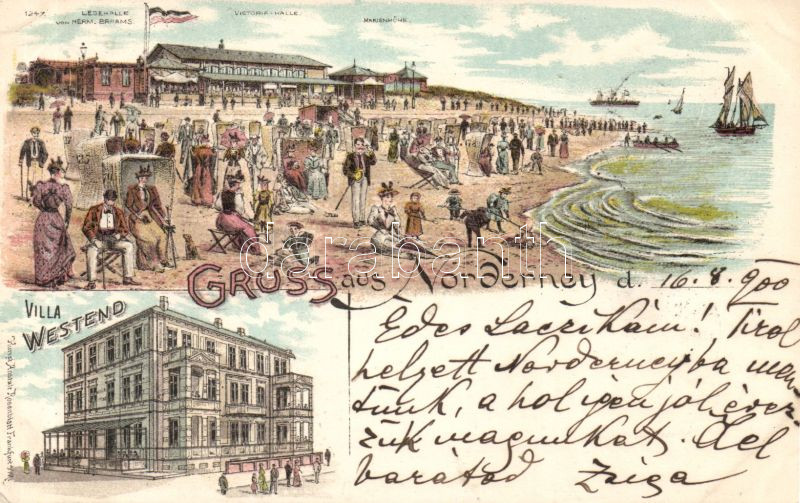 1247.
LESEHALLE
VON HERM. BRAAMS
VICTORIA-HALLE.
MARIENHÖHE.
GRUSS aus Norderney d. 16.8.900
VILLA
WESTEND
Edes Laczikám! Tirol
helyett Norderneyba men
tünk, a hol igen jól érez
zük magunkat. Ölel
barátod Zsiga
darabanth